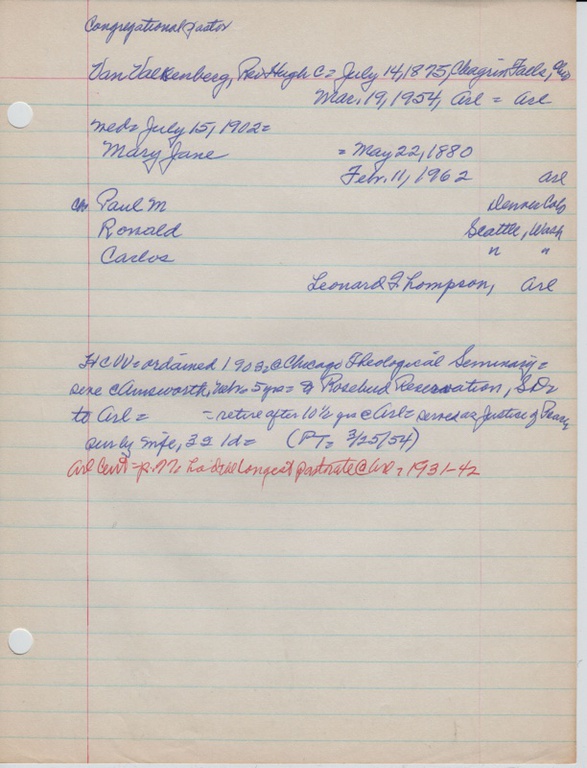 Congregational Pastor
Van Valkenberg, Rev Hugh C = July 14, 1875, Chagrin Falls, Ohio
Mar. 19, 1954, Arl = Arl
med = July 15, 1902 =
Mary Jane = May 22, 1880
Febr. 11, 1962 Arl
ch Paul M Denver Colo
Ronald Seattle, Wash
Carlos " "
Leonard F Thompson, Arl
HCVV = ordained 1903 @ Chicago Theological Seminary =
serve c Ainsworth, Nebr 5 yrs = Rosebud Reservation, SD =
to Arl = = retire after 10½ yrs c Arl = served as Justice of Peace
sur by wife, 3s 1d = (PT = 3/25/54)
Arl Cent = p. had the longest pastorate @ Arl = 1931-42